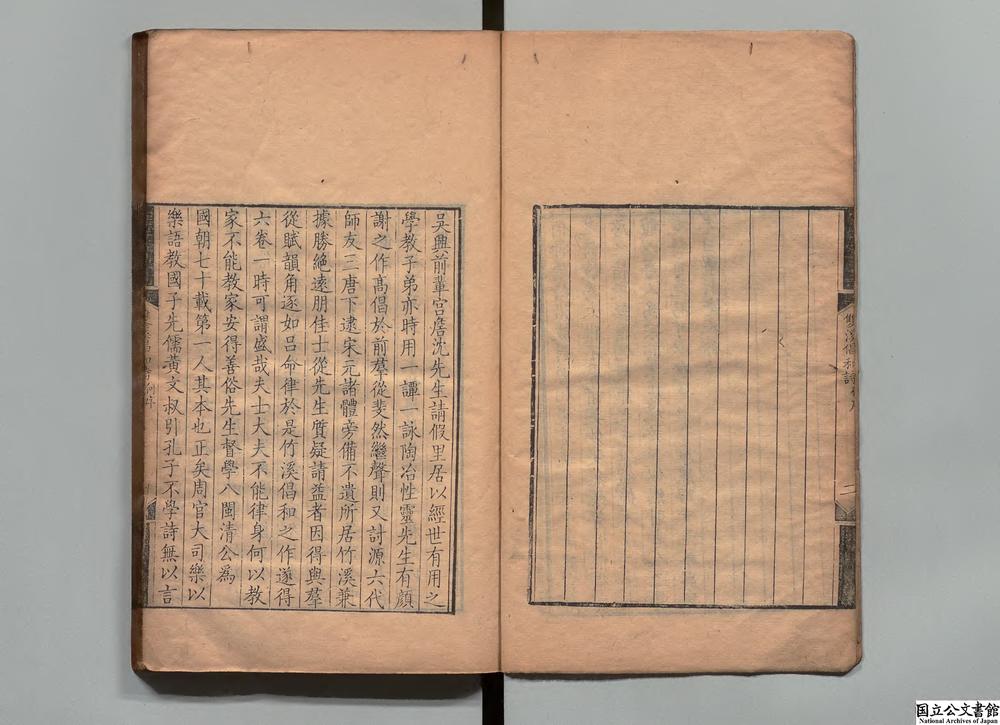 雙溪倡和詩
吳興前輩宮詹沈先生請假里居以經世有用之
學教子弟亦時用一譚一詠陶冶性靈先生有顔
謝之作高倡於前羣從斐然繼聲則又討源六代
師友三唐下逮宋元諸體旁備不遺所居竹溪兼
據勝絕遠朋佳士從先生質疑請益者因得與羣
從賦韻角逐如呂命律於是竹溪倡和之作遂得
六卷一時可謂盛哉夫士大夫不能律身何以教
家不能教家安得善俗先生督學八閩清公為
國朝七十載第一人其本也正矣周官大司樂以
樂語教國子先儒黃文叔引孔子不學詩無以言
国立公文書館
National Archives of Japan